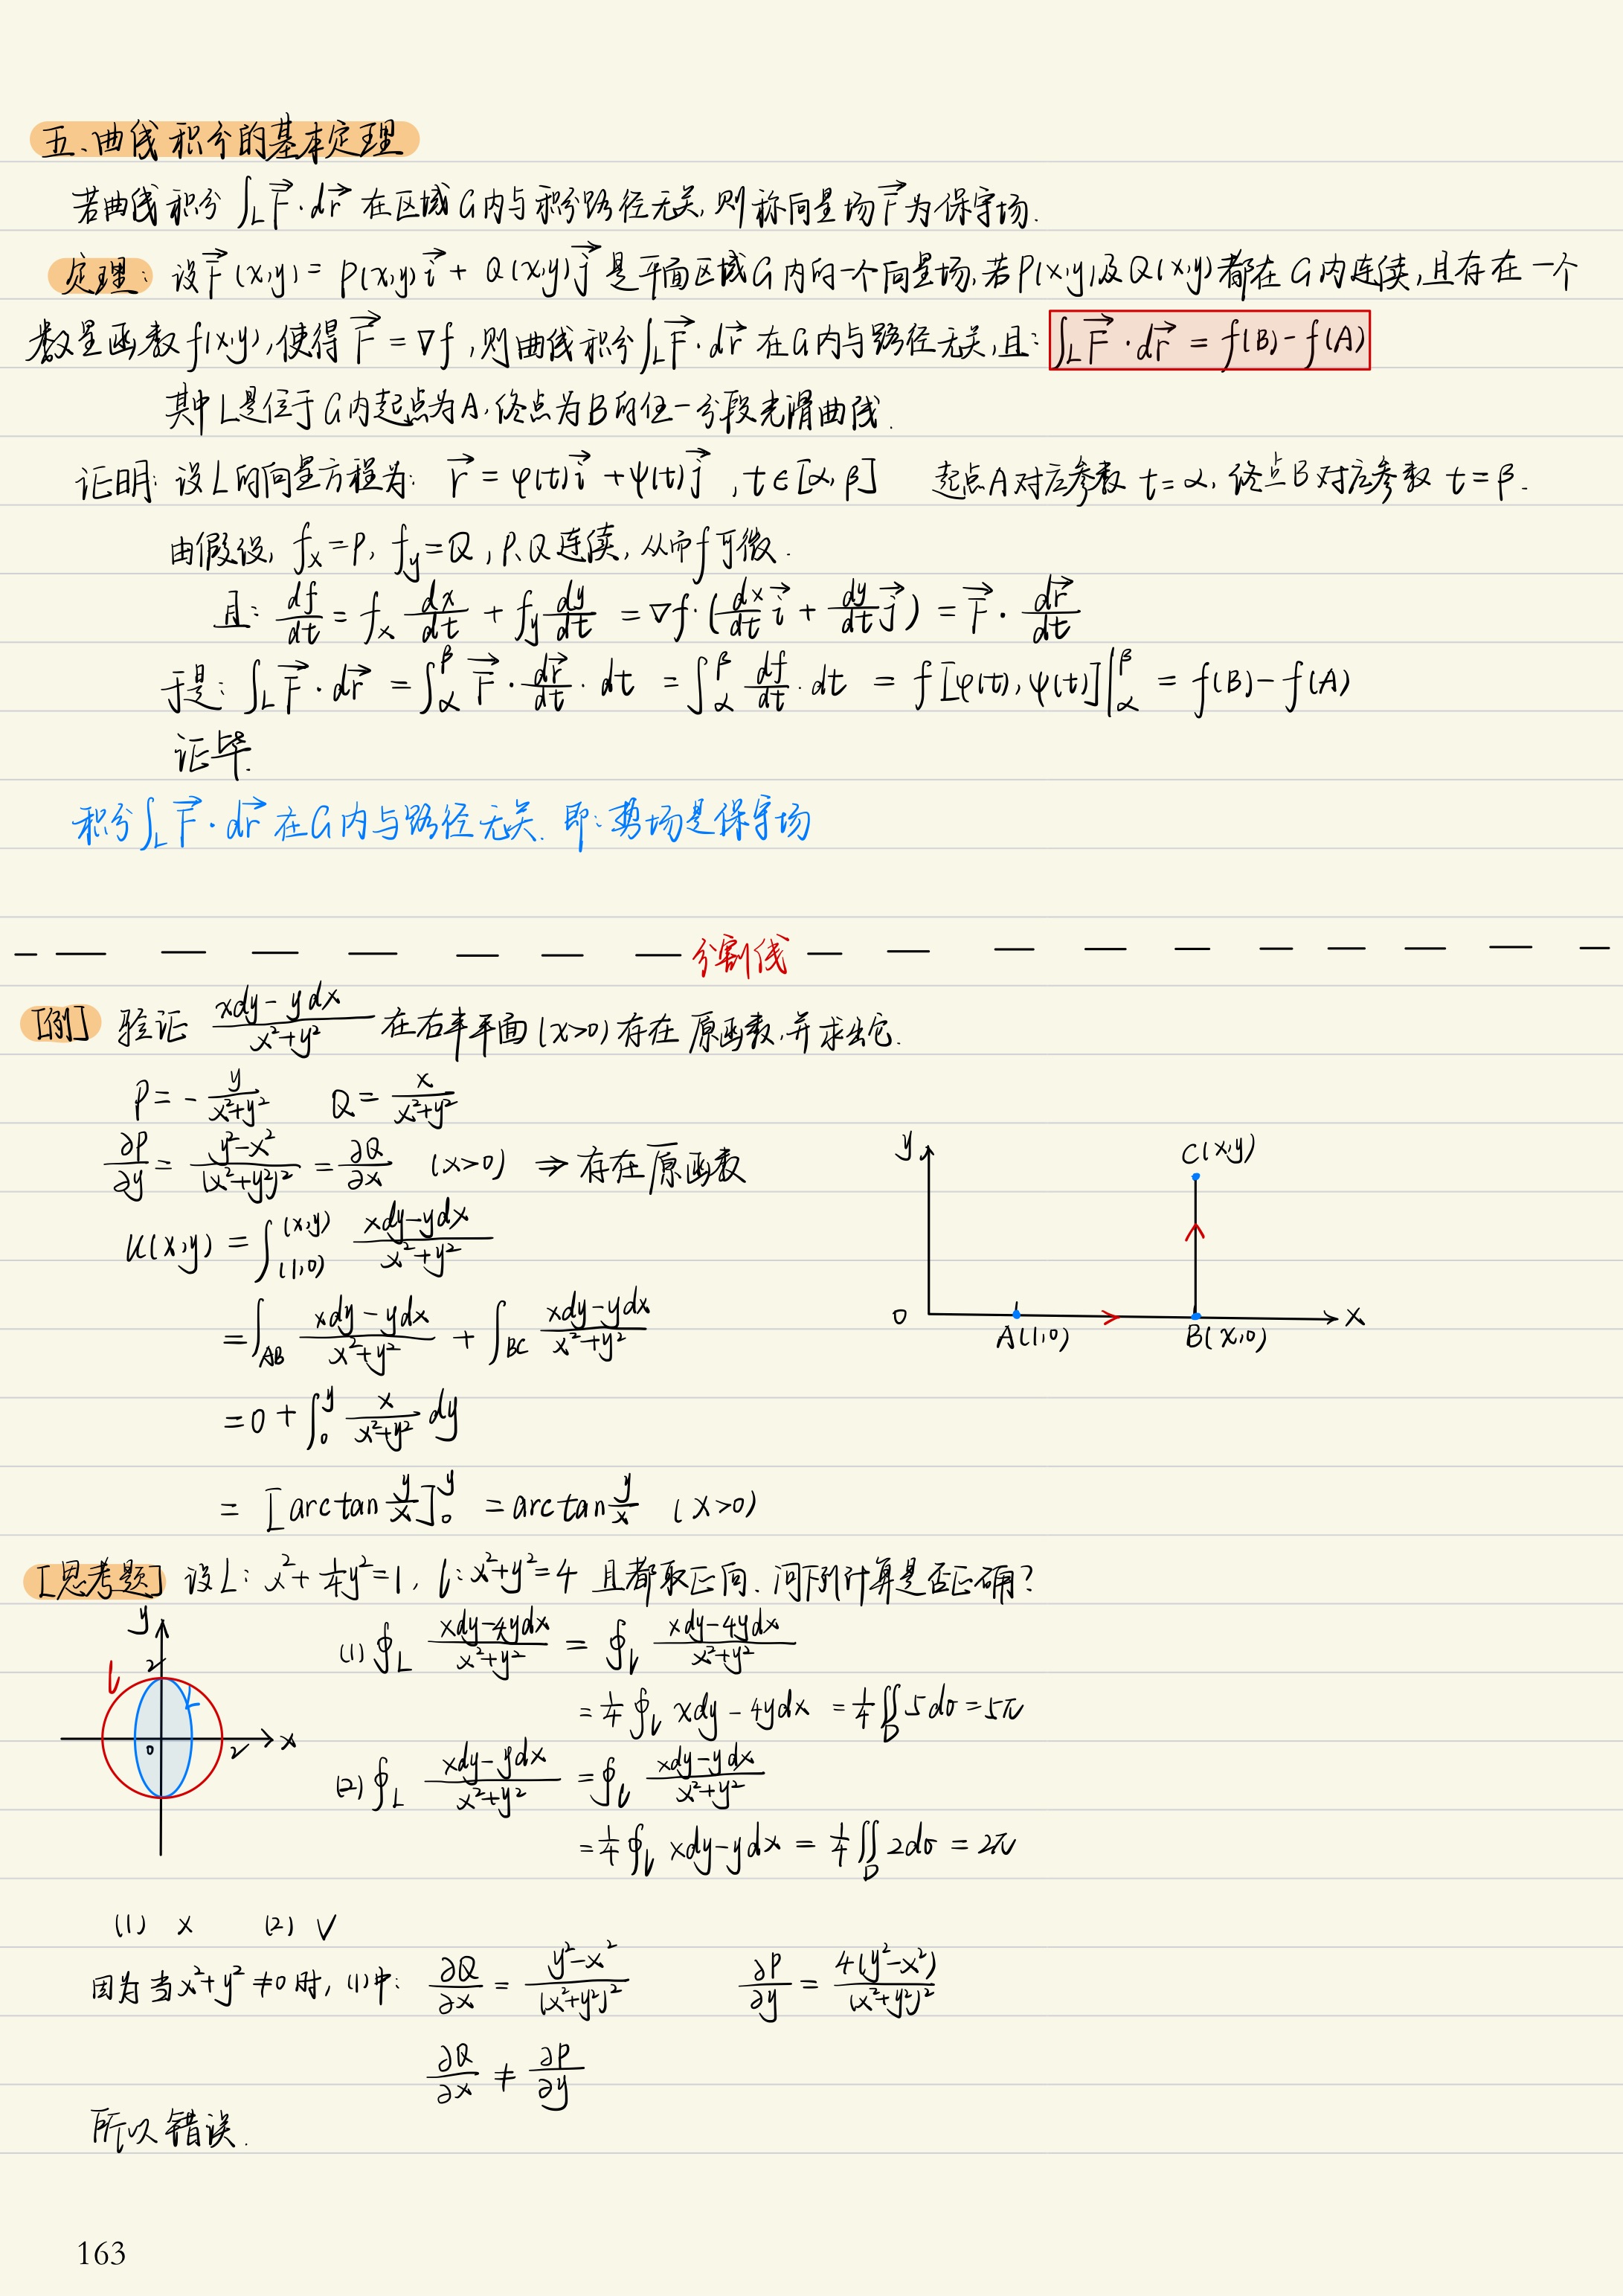 五、曲线积分的基本定理
若曲线积分 ∫_L F⃗·dr⃗ 在区域G内与积分路径无关,则称向量场F⃗为保守场.
定理: 设F⃗(x,y) = P(x,y)i⃗ + Q(x,y)j⃗ 是平面区域G内的一个向量场,若P(x,y)及Q(x,y)都在G内连续,且存在一个
数量函数f(x,y),使得F⃗ = ∇f,则曲线积分∫_L F⃗·dr⃗ 在G内与路径无关,且: ∫_L F⃗·dr⃗ = f(B)-f(A)
其中L是位于G内起点为A,终点为B的任一分段光滑曲线.
证明: 设L的向量方程为: r⃗ = φ(t)i⃗ + ψ(t)j⃗ , t∈[α,β] 起点A对应参数 t=α, 终点B对应参数 t=β.
由假设, f_x=P, f_y=Q, P、Q连续, 从而f可微.
且: df/dt = f_x dx/dt + f_y dy/dt = ∇f·(dx/dt i⃗ + dy/dt j⃗) = F⃗ · dr⃗/dt
于是: ∫_L F⃗·dr⃗ = ∫_α^β F⃗·dr⃗/dt·dt = ∫_α^β df/dt·dt = f[φ(t),ψ(t)]|_α^β = f(B)-f(A)
证毕.
积分∫_L F⃗·dr⃗ 在G内与路径无关. 即:势场是保守场
分割线
[例] 验证 (xdy-ydx)/(x²+y²) 在右半平面(x>0)存在原函数,并求出它.
P = -y/(x²+y²) Q = x/(x²+y²)
∂P/∂y = (y²-x²)/(x²+y²)² = ∂Q/∂x (x>0) ⇒ 存在原函数
u(x,y) = ∫_(1,0)^(x,y) (xdy-ydx)/(x²+y²)
= ∫_AB (xdy-ydx)/(x²+y²) + ∫_BC (xdy-ydx)/(x²+y²)
= 0 + ∫_0^y x/(x²+y²) dy
= [arctan y/x]_0^y = arctan y/x (x>0)
y
C(x,y)
0
A(1,0)
B(x,0)
x
[思考题] 设L: x²+¼y²=1, l: x²+y²=4 且都取正向. 问下列计算是否正确?
(1) ∮_L (xdy-4ydx)/(x²+y²) = ∮_l (xdy-4ydx)/(x²+y²)
= ¼∮_l xdy-4ydx = ¼∬_D 5dσ = 5π
(2) ∮_L (xdy-ydx)/(x²+y²) = ∮_l (xdy-ydx)/(x²+y²)
= ¼∮_l xdy-ydx = ¼∬_D 2dσ = 2π
y
2
l
L
0
2
x
(1) × (2) √
因为当x²+y²≠0时, (1)中: ∂Q/∂x = (y²-x²)/(x²+y²)² ∂P/∂y = 4(y²-x²)/(x²+y²)²
∂Q/∂x ≠ ∂P/∂y
所以错误.
163